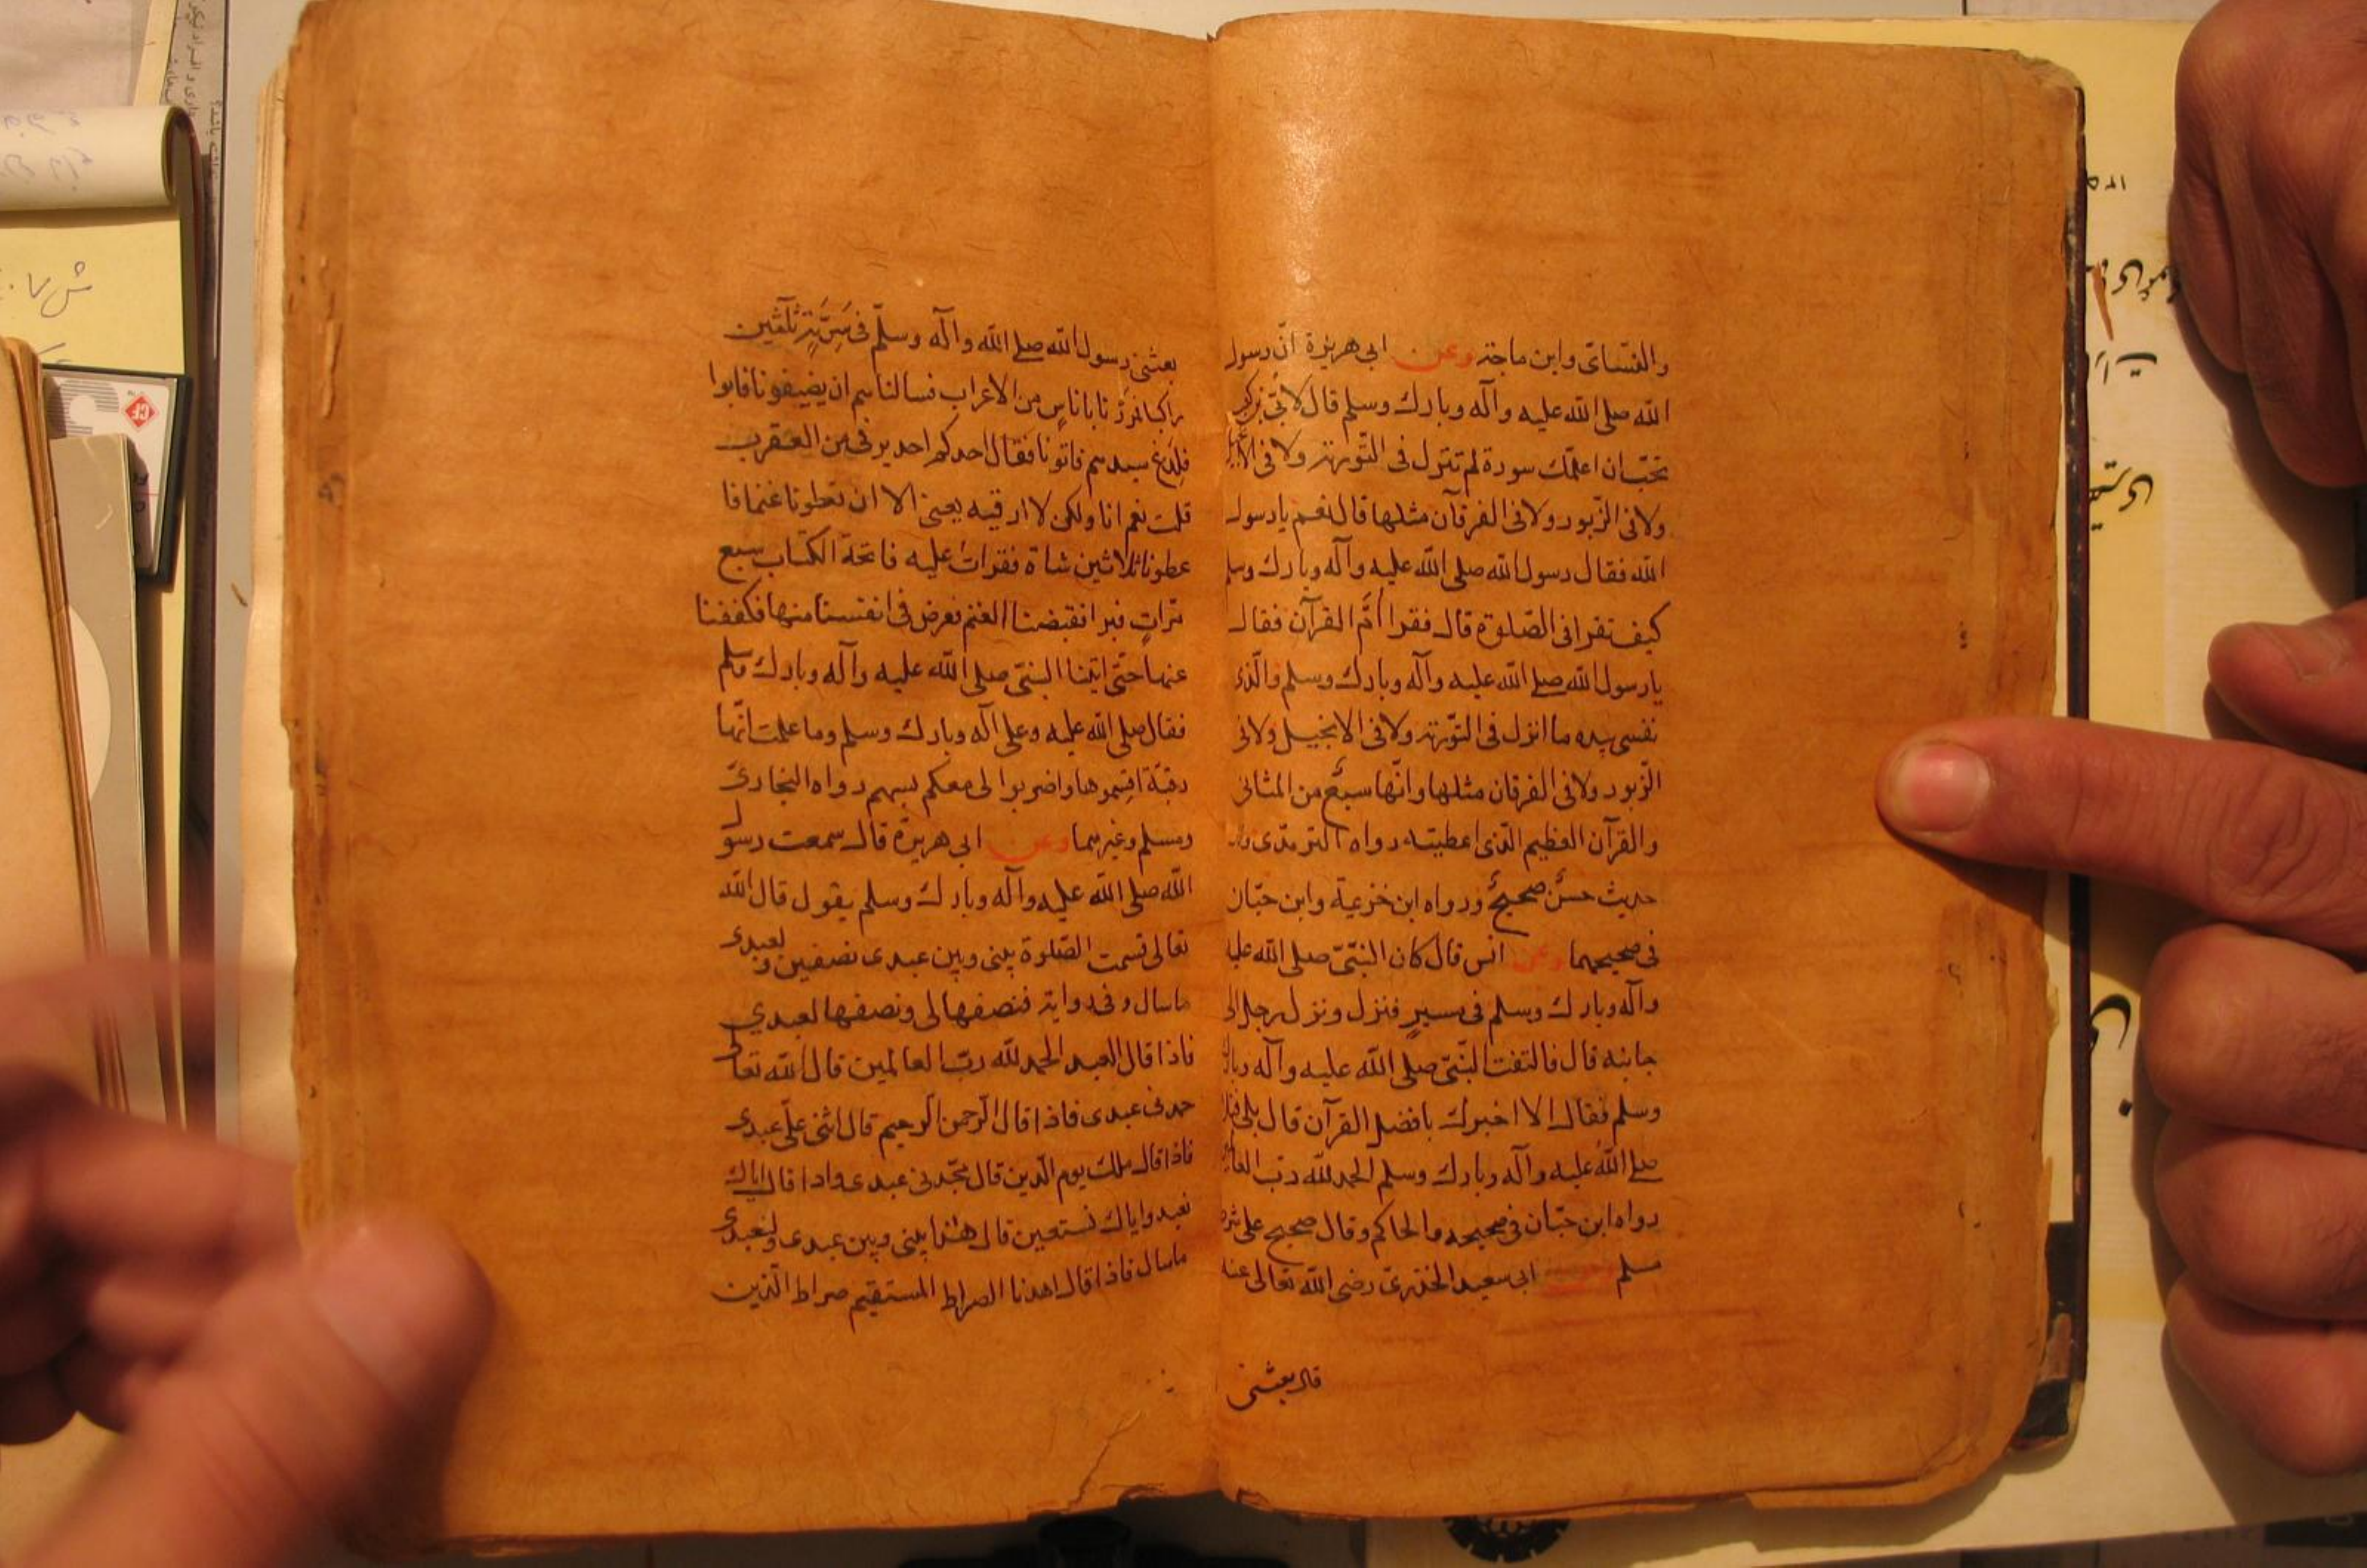 والنسائى وابن ماجة وعن ابى هريرة انّ رسول
الله صلى الله عليه وآله وبارك وسلم قال لابىّ بن كعب
تحبّ ان اعلّمك سورة لم تنزل فى التّورية ولا فى الا
ولا فى الزّبور ولا فى الفرقان مثلها قال نعم يا رسول
الله فقال رسول الله صلى الله عليه وآله وبارك وسلم
كيف تقرا فى الصّلوة قال فقرا امّ القرآن فقال
يا رسول الله صلى الله عليه وآله وبارك وسلم والّذى
نفسى بيده ما انزل فى التّورية ولا فى الانجيل ولا فى
الزّبور ولا فى الفرقان مثلها وانّها سبعٌ من المثانى
والقرآن العظيم الّذى اعطيته رواه الترمذى وقال
حديث حسنٌ صحيحٌ ورواه ابن خزيمة وابن حبّان
فى صحيحهما وعن انس قال كان النبىّ صلى الله عليه
وآله وبارك وسلم فى مسيرٍ فنزل ونزل رجل الى
جانبه قال فالتفت النّبىّ صلى الله عليه وآله وبارك
وسلم فقال الا اخبرك بافضل القرآن قال بلى فتلا
صلى الله عليه وآله وبارك وسلم الحمد لله ربّ العا
رواه ابن حبّان فى صحيحه والحاكم وقال صحيح على شرط
مسلم وعن ابى سعيد الخدرى رضى الله تعالى عنه
قال بعثنى
بعثنى رسول الله صلى الله وآله وسلّم فى سَرِيَّةٍ ثلثين
راكبا نمرّ نا باناسٍ من الاعراب فسالناهم ان يضيفونا فابوا
فلدغ سيدهم فاتونا فقال احدكم احد يرقى من العقرب
قلت نعم انا ولكن لا ارقيه يعنى الا ان تعطونا غنما فا
عطونا ثلاثين شاة فقرات عليه فاتحة الكتاب سبع
مراتٍ فبرا فقبضنا الغنم فعرض فى انفسنا منها فكففنا
عنها حتّى اتينا النبىّ صلى الله عليه وآله وبارك وسلم
فقال صلى الله عليه وعلى آله وبارك وسلم وما علمت انّها
رقبة اقسموها واضربوا لى معكم بسهم رواه البخارىّ
ومسلم وغيرهما وعن ابى هريرة قال سمعت رسول
الله صلى الله عليه وآله وبارك وسلم يقول قال الله
تعالى قسمت الصّلوة بينى وبين عبدى نصفين ولعبدى
ماسال وفى رواية فنصفها لى ونصفها لعبدي
فاذا قال العبد الحمد لله ربّ العالمين قال الله تعالى
حمدنى عبدى فاذا قال الرّحمن الرّحيم قال اثنى علّى عبدى
فاذا قال ملك يوم الدّين قال مجّدنى عبدى واذا قال اياك
نعبد واياك نستعين قال هذا بينى وبين عبدى ولعبدى
ماسال فاذا قال اهدنا الصراط المستقيم صراط الّذين